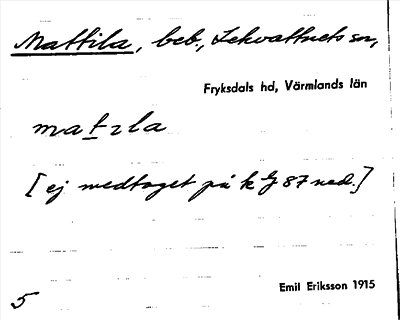 Mattila, beb., Lekvattnets sn,
Fryksdals hd, Värmlands län
matɩla
[ej medtaget på k bl 87 ned.]
5
Emil Eriksson 1915